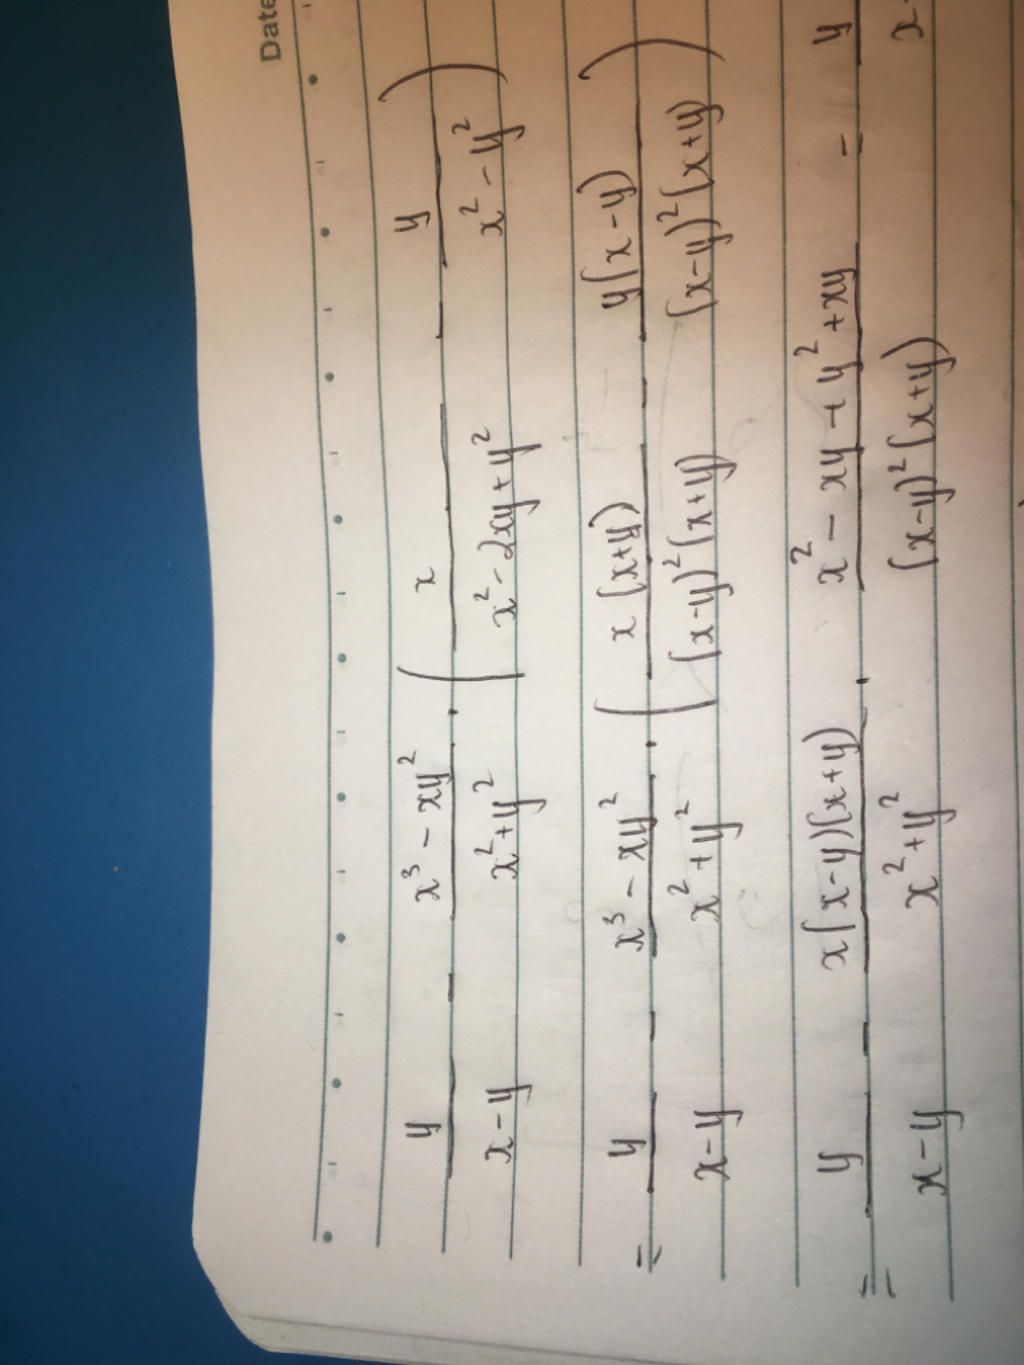 Date
y/(x-y) - (x³ - xy²)/(x²+y²) · ( x/(x² - 2xy + y²) - y/(x² - y²) )
= y/(x-y) - (x³ - xy²)/(x²+y²) · ( x(x+y)/((x-y)²(x+y)) - y(x-y)/((x-y)²(x+y)) )
= y/(x-y) - x(x-y)(x+y)/(x²+y²) · (x² - xy + y² + xy)/((x-y)²(x+y)) = y/x-